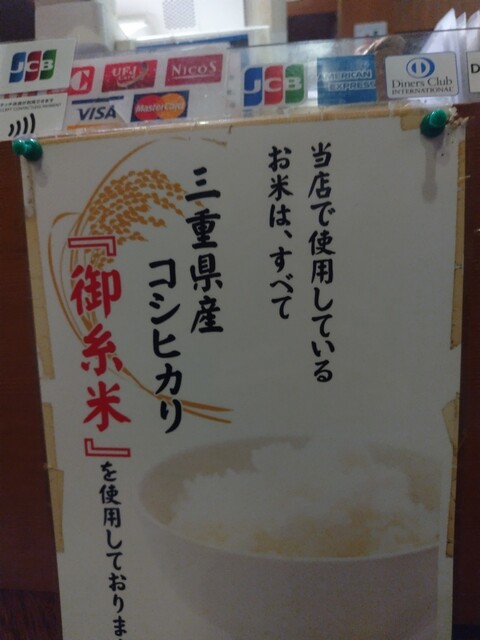 JCB
UFJ Card
NICOS
VISA
MasterCard
JCB
AMERICAN EXPRESS
Diners Club
INTERNATIONAL
当店で使用している
お米は、すべて
三重県産
コシヒカリ
『御糸米』
を使用しておりま